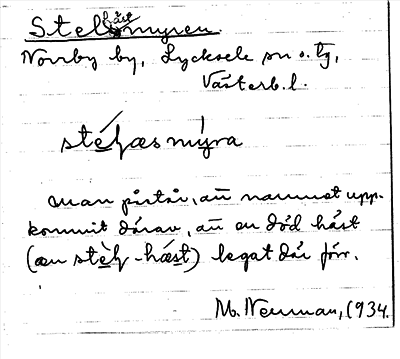 Stelhästmyren.
Norrby by, Lycksele sn o. tg,
Västerb. l.
stéhæsmýra
man påstår, att namnet upp-
kommit därav, att en död häst
(æn stèh-hæst) legat där förr.
M. Neuman, 1934.